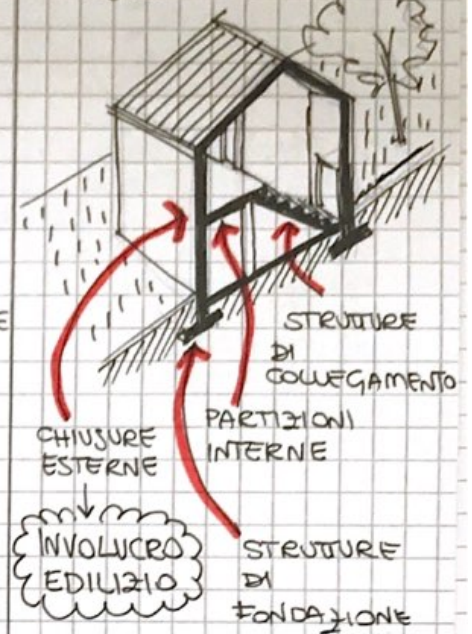 E
STRUTTURE
DI
COLLEGAMENTO
PARTIZIONI
INTERNE
CHIUSURE
ESTERNE
INVOLUCRO
EDILIZIO
STRUTTURE
DI
FONDAZIONE